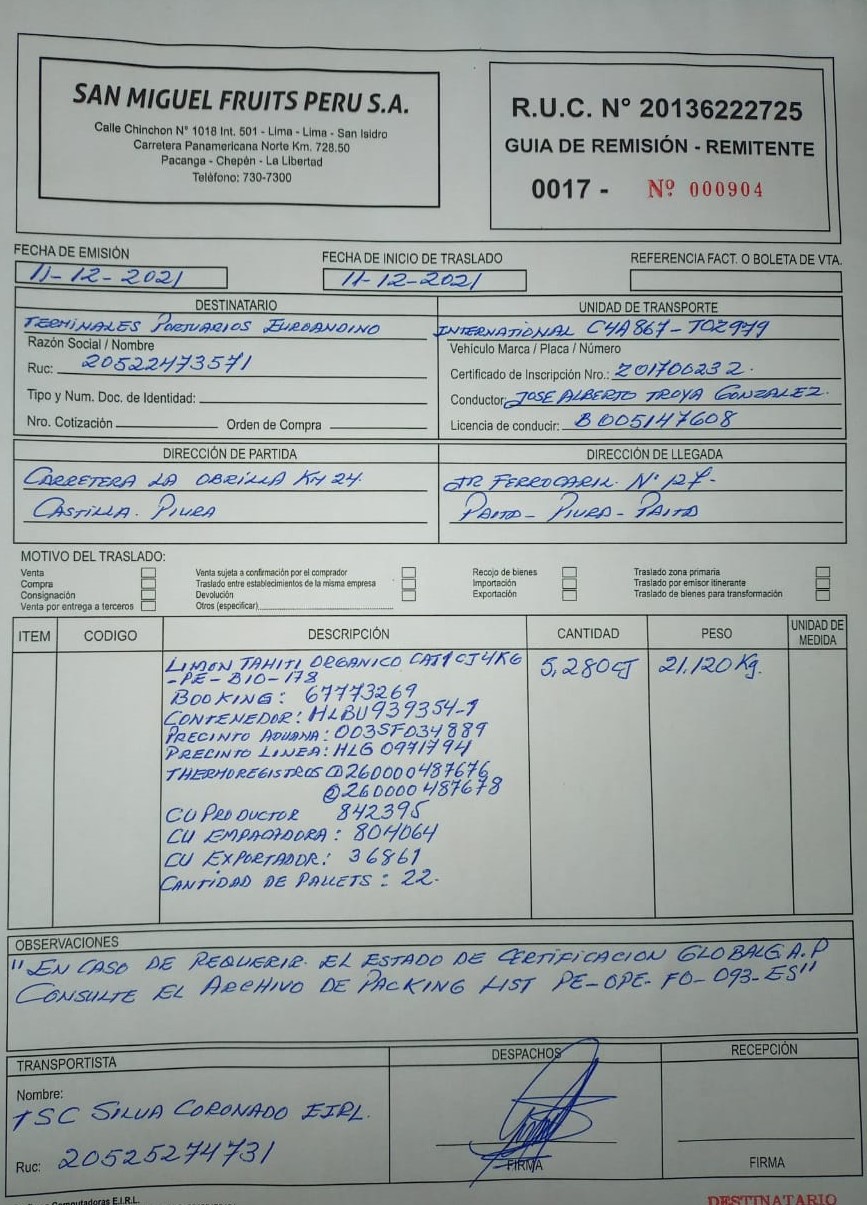 SAN MIGUEL FRUITS PERU S.A.
Calle Chinchon N° 1018 Int. 501 - Lima - Lima - San Isidro
Carretera Panamericana Norte Km. 728.50
Pacanga - Chepén - La Libertad
Teléfono: 730-7300
R.U.C. N° 20136222725
GUIA DE REMISIÓN - REMITENTE
0017 - Nº 000904
FECHA DE EMISIÓN
11-12-2021
FECHA DE INICIO DE TRASLADO
11-12-2021
REFERENCIA FACT. O BOLETA DE VTA.
DESTINATARIO
TERMINALES PORTUARIOS EUROANDINO
Razón Social / Nombre
Ruc: 20522473571
Tipo y Num. Doc. de Identidad:
Nro. Cotización Orden de Compra
UNIDAD DE TRANSPORTE
INTERNATIONAL C4A867-TOZ979
Vehículo Marca / Placa / Número
Certificado de Inscripción Nro.: 201700232.
Conductor: JOSE ALBERTO TROYA GONZALEZ.
Licencia de conducir: B005147608
DIRECCIÓN DE PARTIDA
CARRETERA LA OBRILLA KM 24.
CASTILLA. PIURA
DIRECCIÓN DE LLEGADA
JR FERROCARIL. N° 127-
PAITA- PIURA- PAITA
MOTIVO DEL TRASLADO:
Venta
Compra
Consignación
Venta por entrega a terceros
Venta sujeta a confirmación por el comprador
Traslado entre establecimientos de la misma empresa
Devolución
Otros (especificar)
Recojo de bienes
Importación
Exportación
Traslado zona primaria
Traslado por emisor itinerante
Traslado de bienes para transformación
ITEM CODIGO DESCRIPCIÓN CANTIDAD PESO UNIDAD DE MEDIDA
LIMON TAHITI ORGANICO CAT1 CJ4KG 5,280CJ 21.120 Kg.
-PE-BIO-178
BOOKING: 67773269
CONTENEDOR: HLBU939354-1
PRECINTO ADUANA: 003SF034889
PRECINTO LINEA: HLG 0971794
THERMOREGISTROS ① 260000487676
② 260000487678
CU PRODUCTOR 842395
CU EMPACADORA: 804064
CU EXPORTADOR: 36861
CANTIDAD DE PALLETS: 22.
OBSERVACIONES
"EN CASO DE REQUERIR EL ESTADO DE CERTIFICACION GLOBALG.A.P
CONSULTE EL ARCHIVO DE PACKING LIST PE-OPE-FO-093-ES"
TRANSPORTISTA
Nombre:
TSC SILVA CORONADO EIRL.
Ruc: 20525274731
DESPACHOS
FIRMA
RECEPCIÓN
FIRMA
Computadoras E.I.R.L.
DESTINATARIO